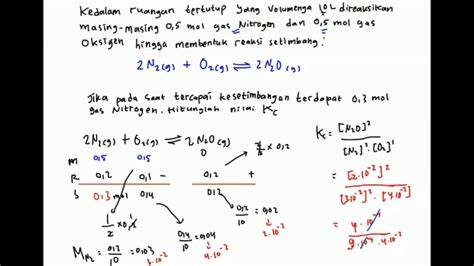 Kedalam ruangan tertutup yang volumenya 10L direaksikan
masing-masing 0,5 mol gas Nitrogen dan 0,5 mol gas
Oksigen hingga membentuk reaksi setimbang :
2N₂(g) + O₂(g) ⇌ 2N₂O(g)
Jika pada saat tercapai kesetimbangan terdapat 0,3 mol
gas Nitrogen. Hitunglah nilai Kc
2N₂(g) + O₂(g) ⇌ 2N₂O(g)
M 0,5 0,5 0
R 0,2 0,1 - 0,2
S 0,3 mol 0,4 0,2
1/2 x 0,2
2/2 x 0,2
M N₂ = 0,3/10 = 0,03
3·10⁻²
0,4/10 = 0,04
4·10⁻²
0,2/10 = 0,02
2·10⁻²
Kc = [N₂O]² / [N₂]² · [O₂]¹
= [2·10⁻²]² / [3·10⁻²]² · [4·10⁻²]
= 4·10⁻⁴ / 9·10⁻⁴ · 4·10⁻²